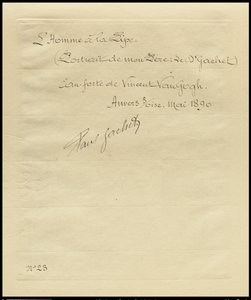 L'Homme à la Pipe.
(Portrait de mon Père: Le Dr Gachet)
Eau-forte de Vincent Van Gogh.
Auvers s/Oise. Mai 1890
Paul Gachet
N° 25